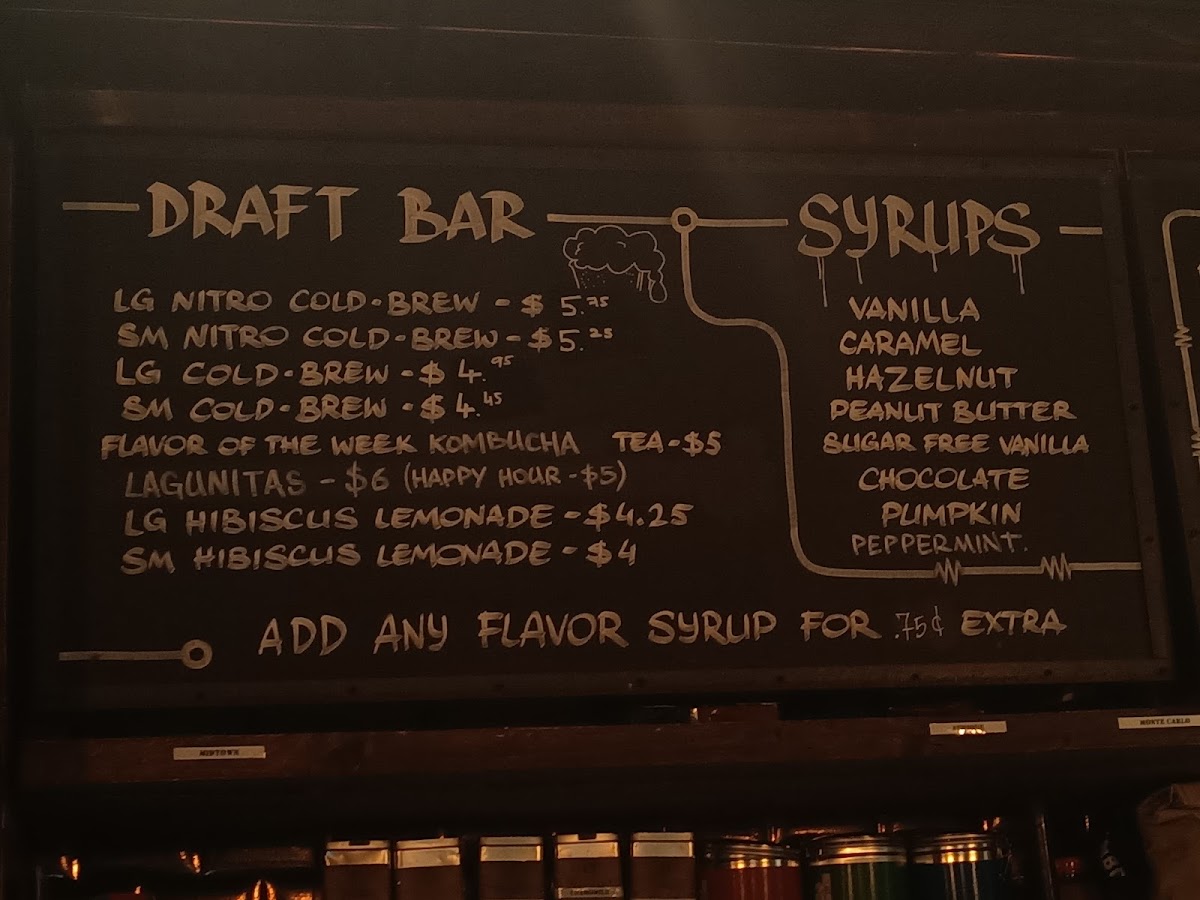 DRAFT BAR
LG NITRO COLD-BREW - $ 5.75
SM NITRO COLD-BREW - $5.25
LG COLD-BREW - $ 4.95
SM COLD-BREW - $ 4.45
FLAVOR OF THE WEEK KOMBUCHA TEA - $5
LAGUNITAS - $6 (HAPPY HOUR - $5)
LG HIBISCUS LEMONADE - $4.25
SM HIBISCUS LEMONADE - $4
SYRUPS
VANILLA
CARAMEL
HAZELNUT
PEANUT BUTTER
SUGAR FREE VANILLA
CHOCOLATE
PUMPKIN
PEPPERMINT.
ADD ANY FLAVOR SYRUP FOR .75¢ EXTRA
MIDTOWN
MONTE CARLO